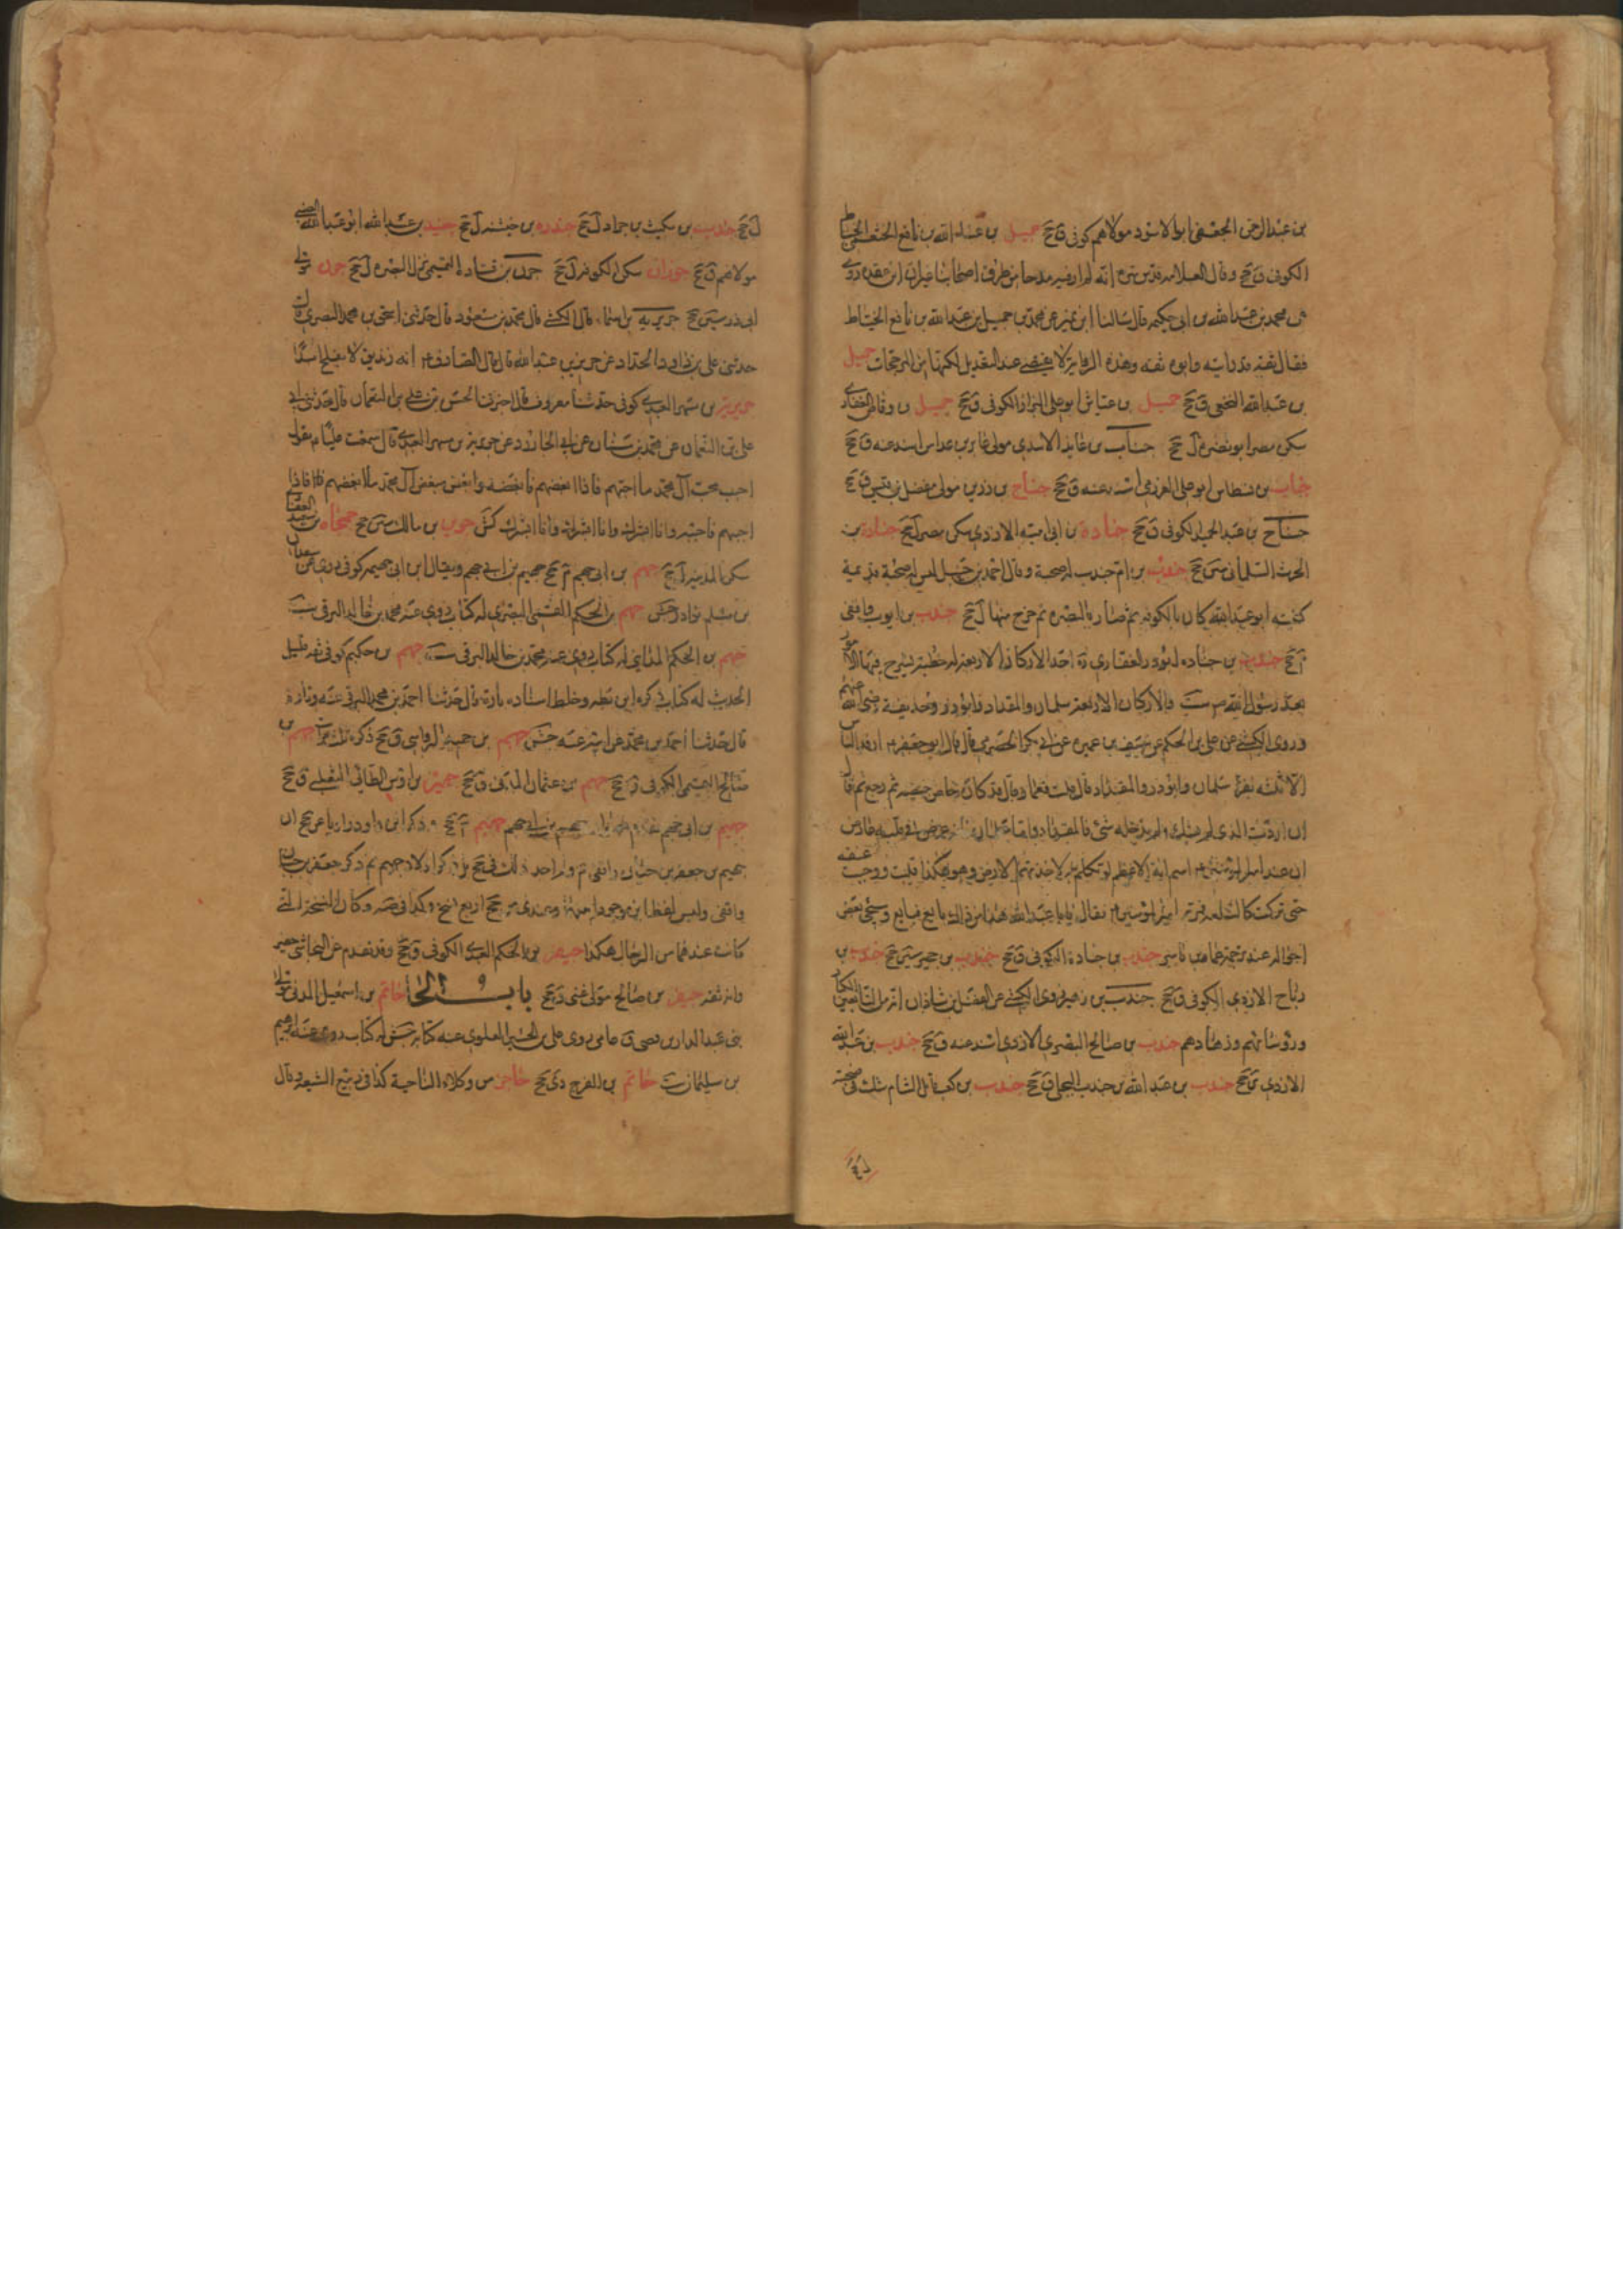 بن عبد الرحمن الجعفى ابو الاسود مولاهم كوفى ق جخ جميل بن عبد الله بن نافع الخثعمى الخياط
الكوفى ق جخ وقال العلامه قدس سره انه لم ار فيه مدحا من طرق اصحابنا غير ان ابن عقده روى
عن محمد بن عبد الله بن ابى حكيمه قال سالنا ابن نمير عن محمد بن جميل بن عبد الله بن نافع الخياط
فقال ثقه قد رايته وابوه ثقه وهذه الرواية لا يقتضى عندى التعديل لكنها من المرجحات جميل
بن عبد الله النخعى ق جخ جميل بن عياش ابو على البزاز الكوفى ق جخ جميل بن وقاص الغفارى
سكن مصر ابو نضره ل جخ جناب بن عايذ الاسدى مولى عامر بن عداس اسند عنه ق جخ
جناب بن نسطاس ابو على العرزمى اسند عنه ق جخ جناح بن رزين مولى مفضل بن قيس ق جخ
جناح بن عبد الحميد الكوفى ق جخ جناده بن ابى اميه الازدى سكن مصر ل جخ جناده بن
الحرث السلمانى سين جخ جندب بن ام جندب له صحبة وقال احمد بن حنبل ليس له صحبة قديمة
كنيته ابو عبد الله كان بالكوفه ثم صار الى البصره ثم خرج منها ل جخ جندب بن ايوب واقفى
م جخ جندب بن جناده ابو ذر الغفارى ره احد الاركان الاربعة له خطبة يشرح فيها الامور
بعد رسول الله ص ست والاركان الاربعة سلمان والمقداد وابو ذر وحذيفة رضى الله عنهم
وروى الكشى عن على بن الحكم عن سيف بن عميره عن ابى بكر الحضرمى قال قال ابو جعفر ع ارتد الناس
الا ثلثه نفر سلمان وابو ذر والمقداد قال قلت فعمار قال قد كان جاض جيضه ثم رجع ثم قال
ان اردت الذى لم يشك ولم يدخله شئ فالمقداد واما سلمان فانه عرض فى قلبه عارض
ان عند امير المؤمنين ع اسم الله الاعظم لو تكلم به لاخذتهم الارض وهو هكذا فلبب ووجئت عنقه
حتى تركت كالسلعه فمر به امير المؤمنين ع فقال له يا ابا عبد الله هذا من ذاك بايع فبايع وسيجئ بعض
احواله عند ترجمة عمار بن ياسر جندب بن جناده الكوفى ق جخ جندب بن حجير سين جخ جندب بن
رباح الازدى الكوفى ق جخ جندب بن زهير روى الكشى عن الفضل بن شاذان انه من التابعين الكبار
ورؤسائهم وزهادهم جندب بن صالح البصرى الازدى اسند عنه ق جخ جندب بن عبد الله
الازدى ى جخ جندب بن عبد الله بن جندب البجلى ق جخ جندب بن كعب قاتل الشام شك فى صحبته
ل جخ جندب بن مكيث بن جراد ل جخ جندره بن خيشنه ل جخ جنيد بن عبد الله ابو عبد الله الضبى
مولاهم ق جخ جوزان سكن الكوفه ل جخ جون بن قتاده التميمى نزل البصره ل جخ جون مولى
ابى ذر سين جخ جويريه بن اسماء قال الكشى قال محمد بن مسعود قال حدثنى اسحق بن محمد البصرى قال
حدثنى على بن داود الحداد عن حريز بن عبد الله قال قال الصادق ع انه زنديق لا يفلح ابدا
جويريه بن مسهر العبدى كوفى حدثنا معروف قال اخبرنا الحسن بن على بن النعمان قال حدثنى ابى
على بن النعمان عن محمد بن سنان عن ابى الجارود عن جويريه بن مسهر العبدى قال سمعت عليا ع يقول
احب محب آل محمد ما احبهم فاذا ابغضهم فابغضه وابغض مبغض آل محمد ما ابغضهم فاذا
احبهم فاحبه وانا ابشرك وانا ابشرك وانا ابشرك كش جوين بن مالك سين جخ جهجاه بن سعيد الغفارى
سكن المدينه ل جخ جهم بن ابى جهم م جخ جهيم بن ابى جهم ويقال ابن ابى جهمه كوفى روى عن سعدان
بن مسلم نوادر جش جهم بن الحكم القمى البصرى له كتاب روى عنه محمد بن خالد البرقى ست
جهم بن الحكم المداينى له كتاب روى عنه محمد بن خالد البرقى ست جهم بن حكيم كوفى ثقه قليل
الحديث له كتاب ذكره ابن بطه وخلط اسناده تارة قال حدثنا احمد بن محمد البرقى عنه وتارة
قال حدثنا احمد بن محمد عن ابيه عنه جش جهم بن حميد الرواسى ق جخ ذكره ثلث مرات جهم بن
صالح التميمى الكوفى ق جخ جهم بن عثمان المدنى ق جخ جهير بن اوس الطائى الثعلبى ق جخ
جهيم بن ابى جهم جهيم بن ابى جهم جهيم م جخ وذكر ابن داود رايا عن جخ ان
جهيم بن جعفر بن حيان واقفى م ولم اجد ذلك فى جخ بل ذكر اولا جهيم ثم ذكر جعفر بن حيان
واقفى وليس لفظ ابن موجودا بينهما وعندى من جخ اربع نسخ وكذا فى صه وكان النسخة التى
كانت عندهما من الرجال هكذا جيفر بن الحكم العبدى الكوفى ق جخ وقد تقدم عن النجاشى جفير
وانه ثقه جيفر بن صالح مولى غنى ق جخ باب الحاء حاتم بن اسمعيل المدنى مولى
بنى عبد الدار بن قصى ق عامى روى على بن الحسين العلوى عنه كتابه جش له كتاب روى عنه ابرهيم
بن سليمان ست حاتم بن الفرج دى جخ حاجز من وكلاء الناحية كذا فى ربيع الشيعه وقال